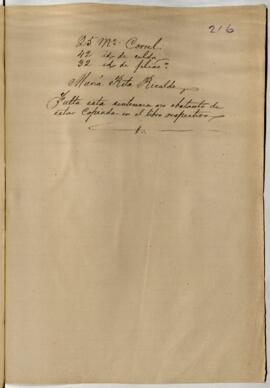 216
25 Ms. Correl.
42 id. de celda
32 id. de
María Rita Ricalde
Falta esta sentencia no obstante de
estar Copiada en el libro respectivo